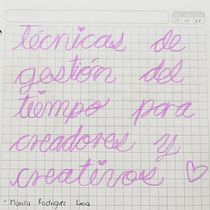 técnicas de
gestión del
tiempo para
creadores y
creativos
- Mónica Rodríguez